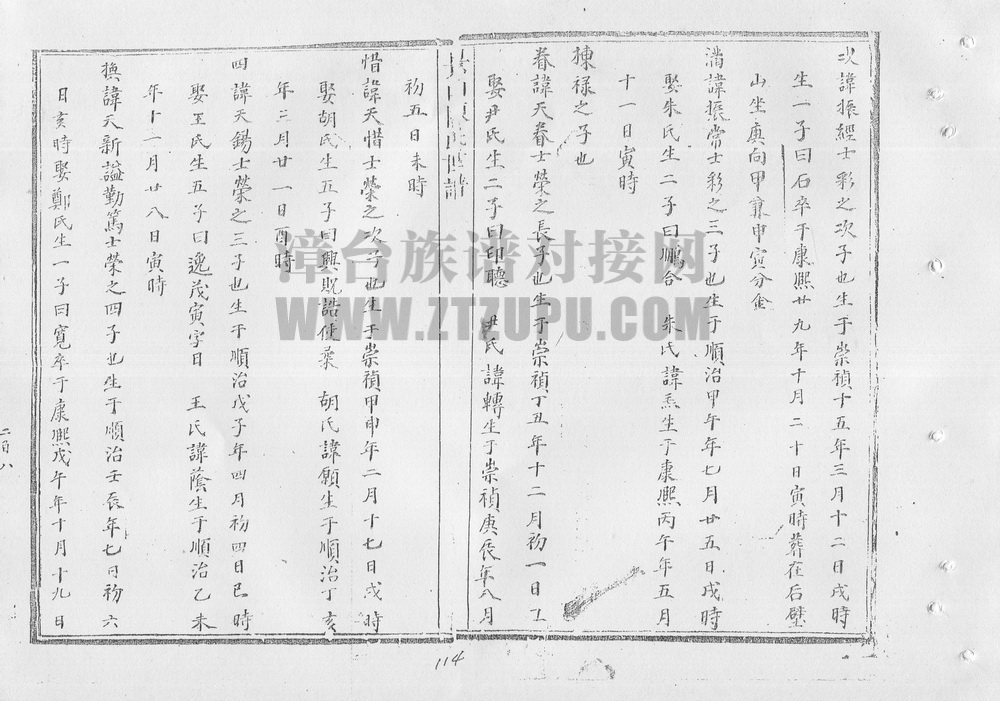 次諱振經士彩之次子也生于崇禎十五年三月十二日戌時
生一子曰石卒于康熙廿九年十月二十日寅時葬在石壁
山坐庚向甲兼申寅分金
諱振常士彩之三子也生于順治甲午年七月廿五日戌時
娶朱氏生二子曰鵬合 朱氏諱 生于康熙丙午年五月
十一日寅時
棟祿之子也
眷諱天眷士榮之長子也生于崇禎丁丑年十二月初一日
娶尹氏生二子曰印聰 尹氏諱轉生于崇禎庚辰年八月
初五日未時
惜諱天惜士榮之次子也生于崇禎甲申年二月十七日戌時
娶胡氏生五子曰興 胡氏諱願生于順治丁亥
年三月廿一日酉時
四諱天錫士榮之三子也生于順治戊子年四月初四日巳時
娶王氏生五子曰逸茂寅字日 王氏諱蔭生于順治乙未
年十二月廿八日寅時
換諱天新謚勤篤士榮之四子也生于順治壬辰年七月初六
日亥時娶鄭氏生一子曰寬卒于康熙戊午年十月十九日
二百八
114
漳台族谱对接网
WWW.ZTZUPU.COM